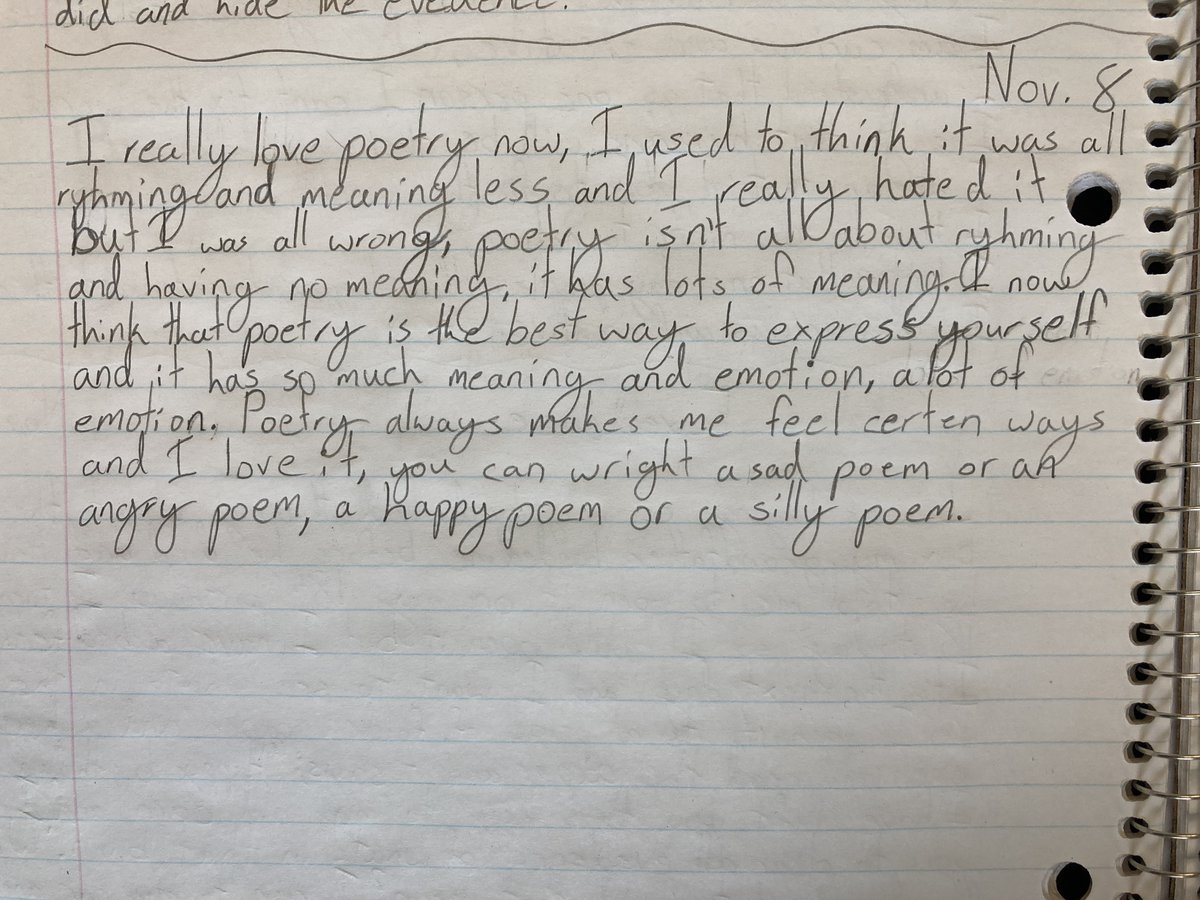 did and hide the evedence.
Nov. 8
I really love poetry now, I used to think it was all
ryhming and meaning less and I really hated it
but I was all wrong, poetry isn't all about ryhming
and having no meaning, it has lots of meaning. I now
think that poetry is the best way to express yourself
and it has so much meaning and emotion, a lot of
emotion. Poetry always makes me feel certen ways
and I love it, you can wright a sad poem or an
angry poem, a happy poem or a silly poem.